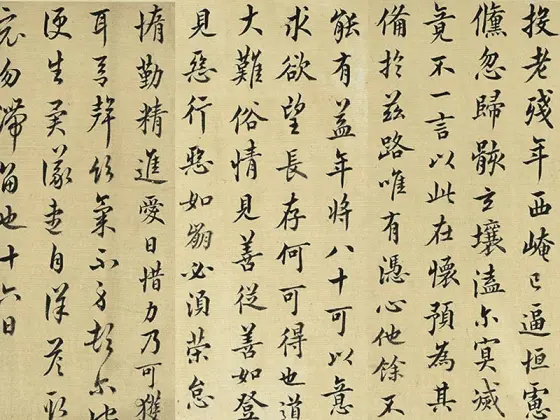 投老残年西崦已逼恒慮
儻忽歸骸玄壤溘尓冥滅
竟不一言以此在懷預為其
備於茲路唯有憑心他餘不
能有益年將八十可以意
求欲望長存何可得也道
大難俗情見善從善如登
見惡行惡如崩必須榮怠
惰勤精進愛日惜力乃可獲
耳 聲 氣不 尓
便生 自
勿滯留也十六日